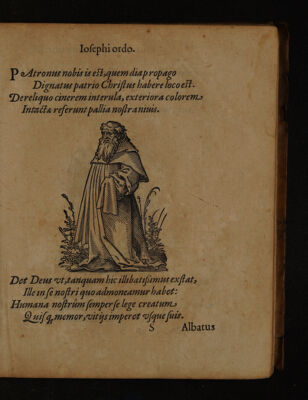 Iosephi ordo.
PAtronus nobis is est, quem dia propago
Dignatus patrio Christus habere loco est.
De reliquo cinerem interula, exteriora colorem
Intactæ referunt pallia nostra niuis.
Det Deus vt, tanquam hic illibatißimus exstat,
Ille in se nostri quo admoneamur habet:
Humana nostrûm semper se lege creatum
Quisq₃ memor, vitijs imperet vsque suis.
S Albatus